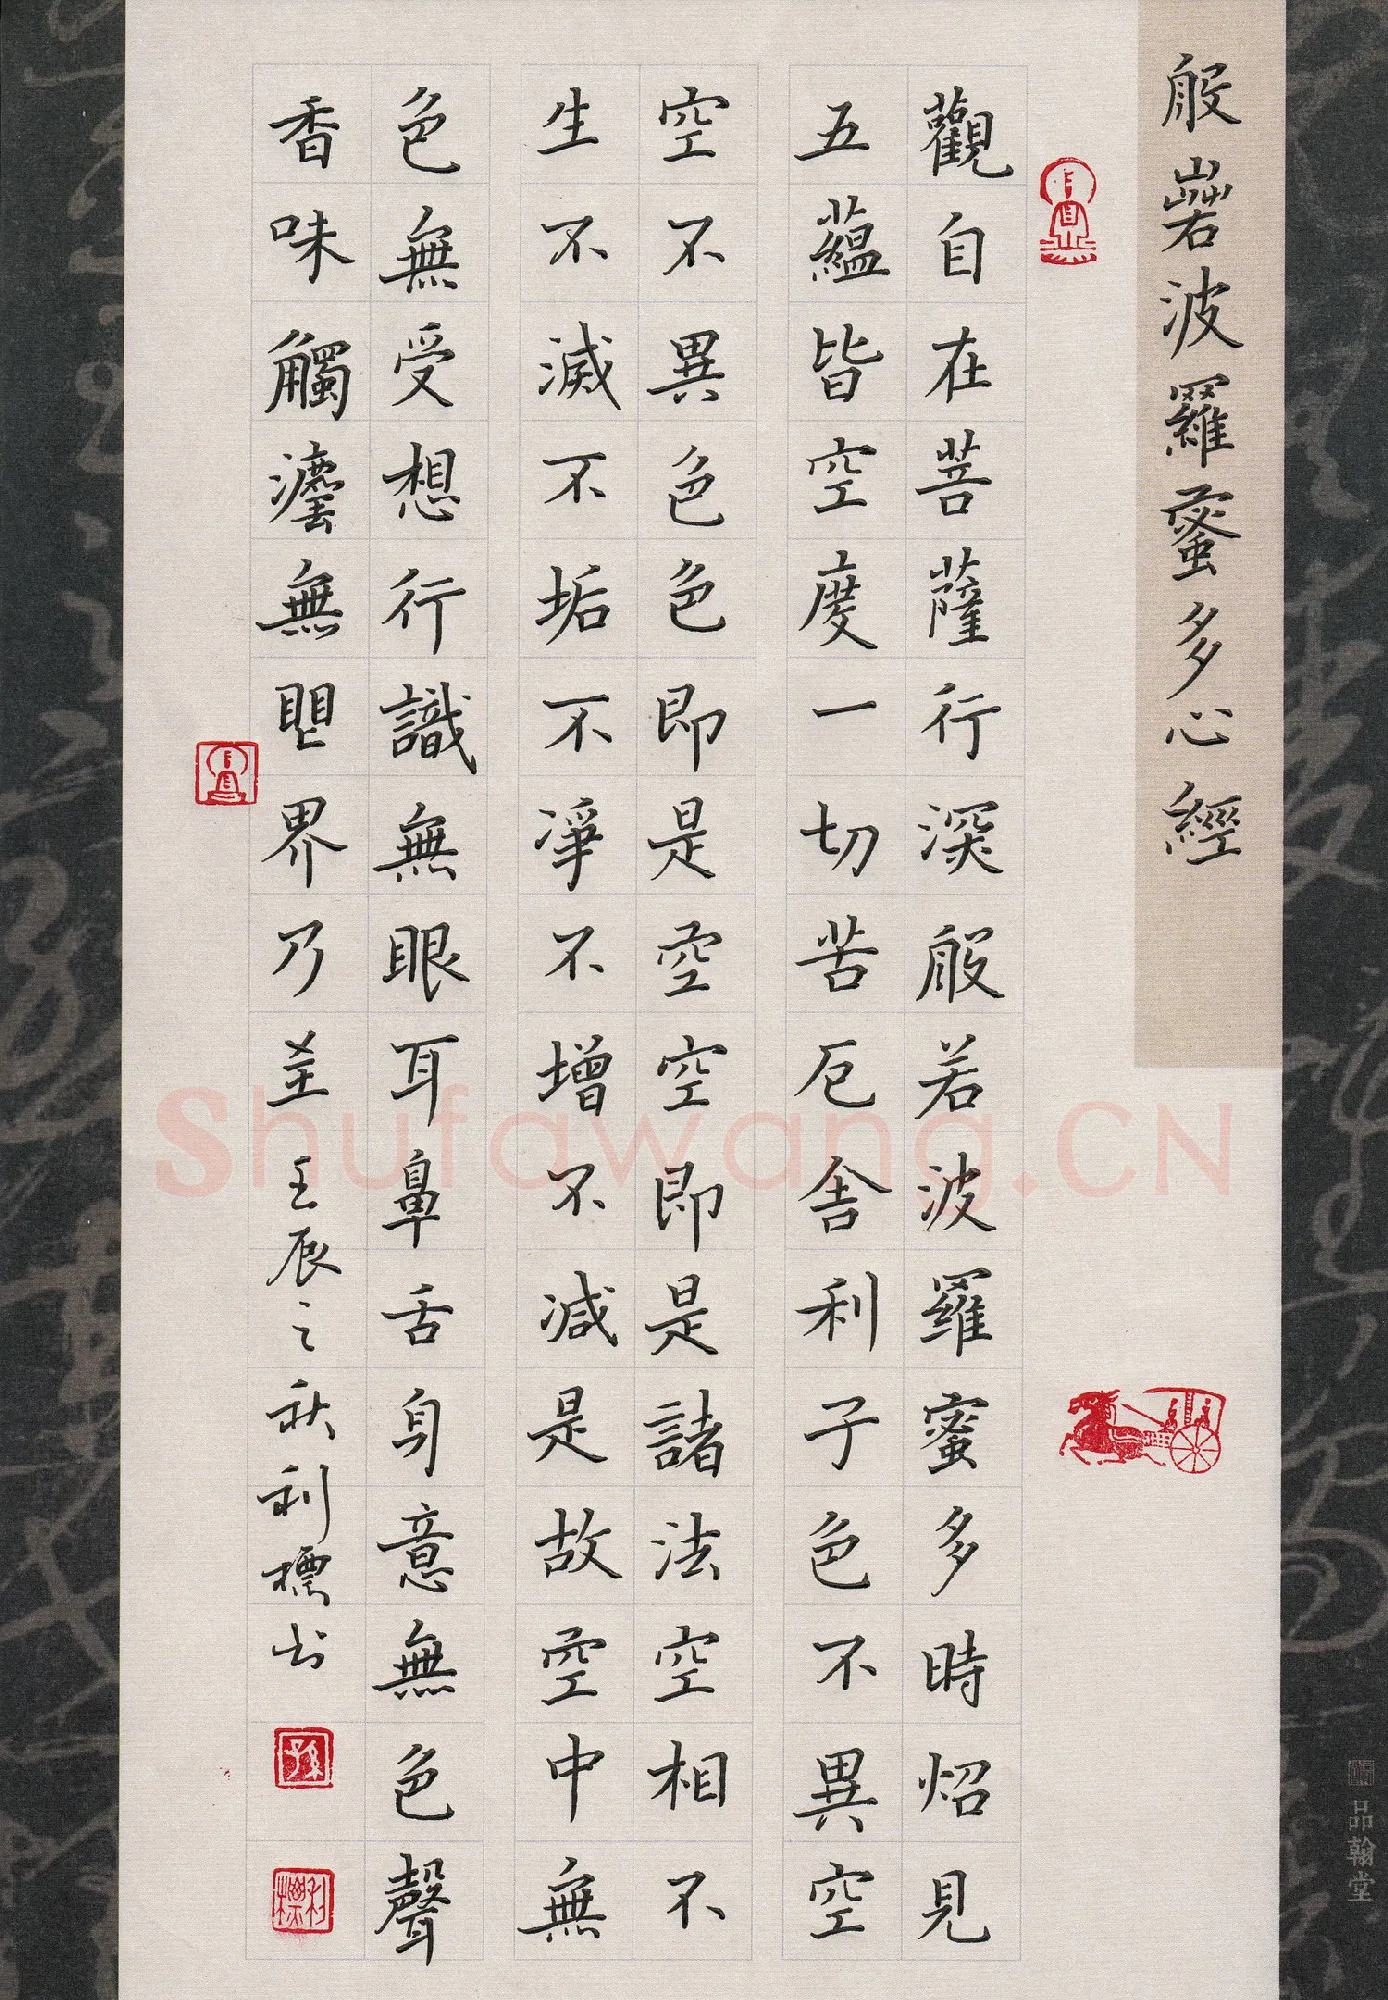 般若波羅蜜多心經
觀自在菩薩行深般若波羅蜜多時炤見
五蘊皆空度一切苦厄舍利子色不異空
空不異色色即是空空即是諸法空相不
生不滅不垢不凈不增不減是故空中無
色無受想行識無眼耳鼻舌身意無色聲
香味觸灋無眼界乃至
壬辰之秋利標书
孫
利標
品翰堂
Shufawang.CN